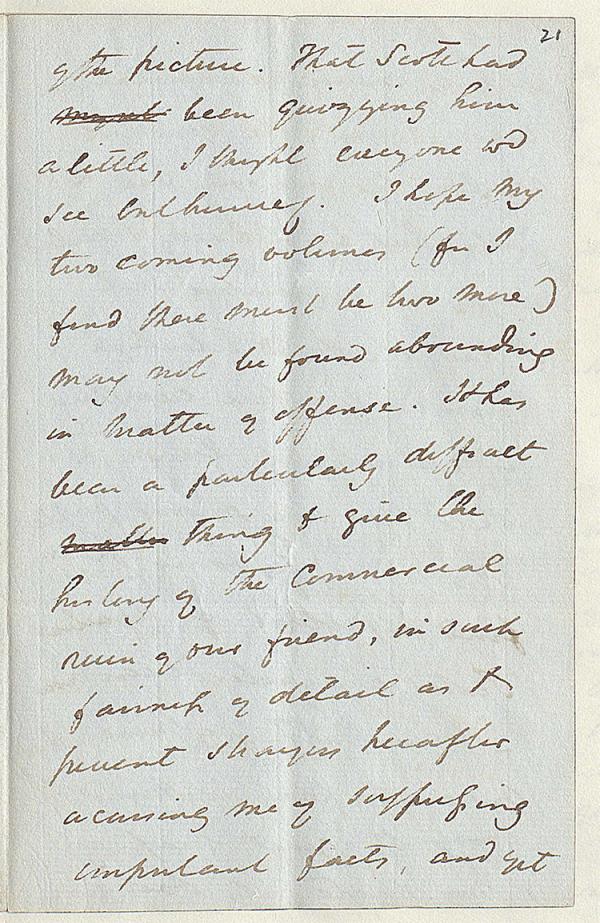 21
of the picture. That Scott had
been quizzing him
a little, I thought everyone wd
see
I hope my
two coming volumes (for I
find there must be two more)
may not be found abounding
in matter of offense. It has
been a particularly difficult
matter thing to give the
history of the Commercial
ruin of our friend, in such
fairness of detail as to
prevent strangers hereafter
accusing me of suppressing
important facts, and yet